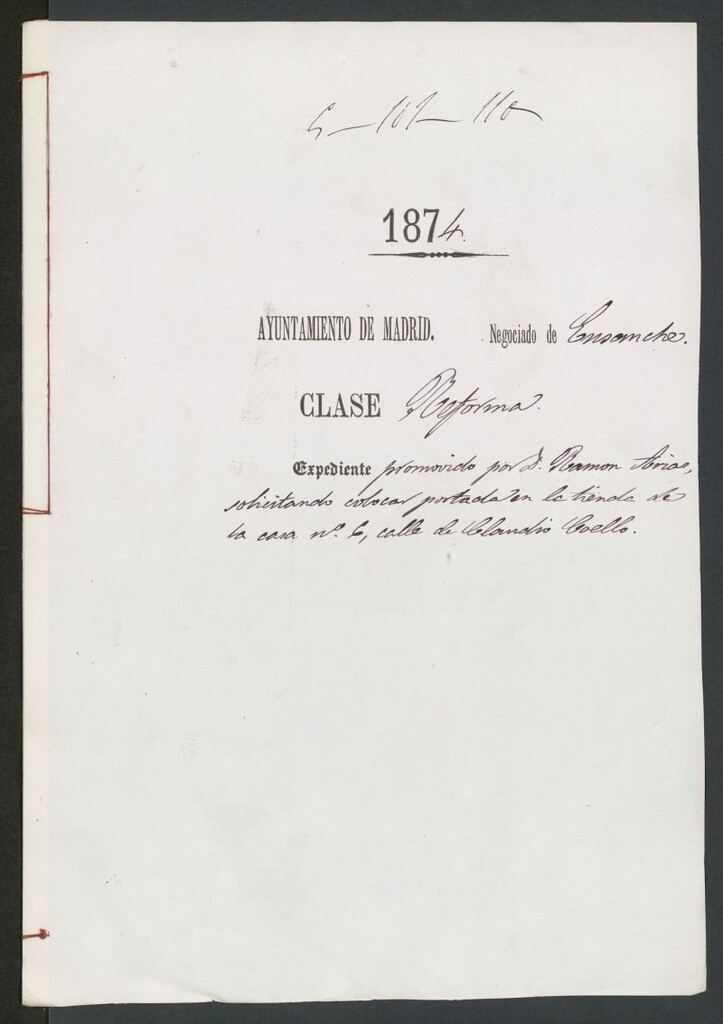 5-101-110
1874.
AYUNTAMIENTO DE MADRID. Negociado de Ensanche.
CLASE Reforma.
Expediente promovido por D. Ramon Arias,
solicitando colocar portada en la tienda de
la casa nº. 6, calle de Claudio Coello.